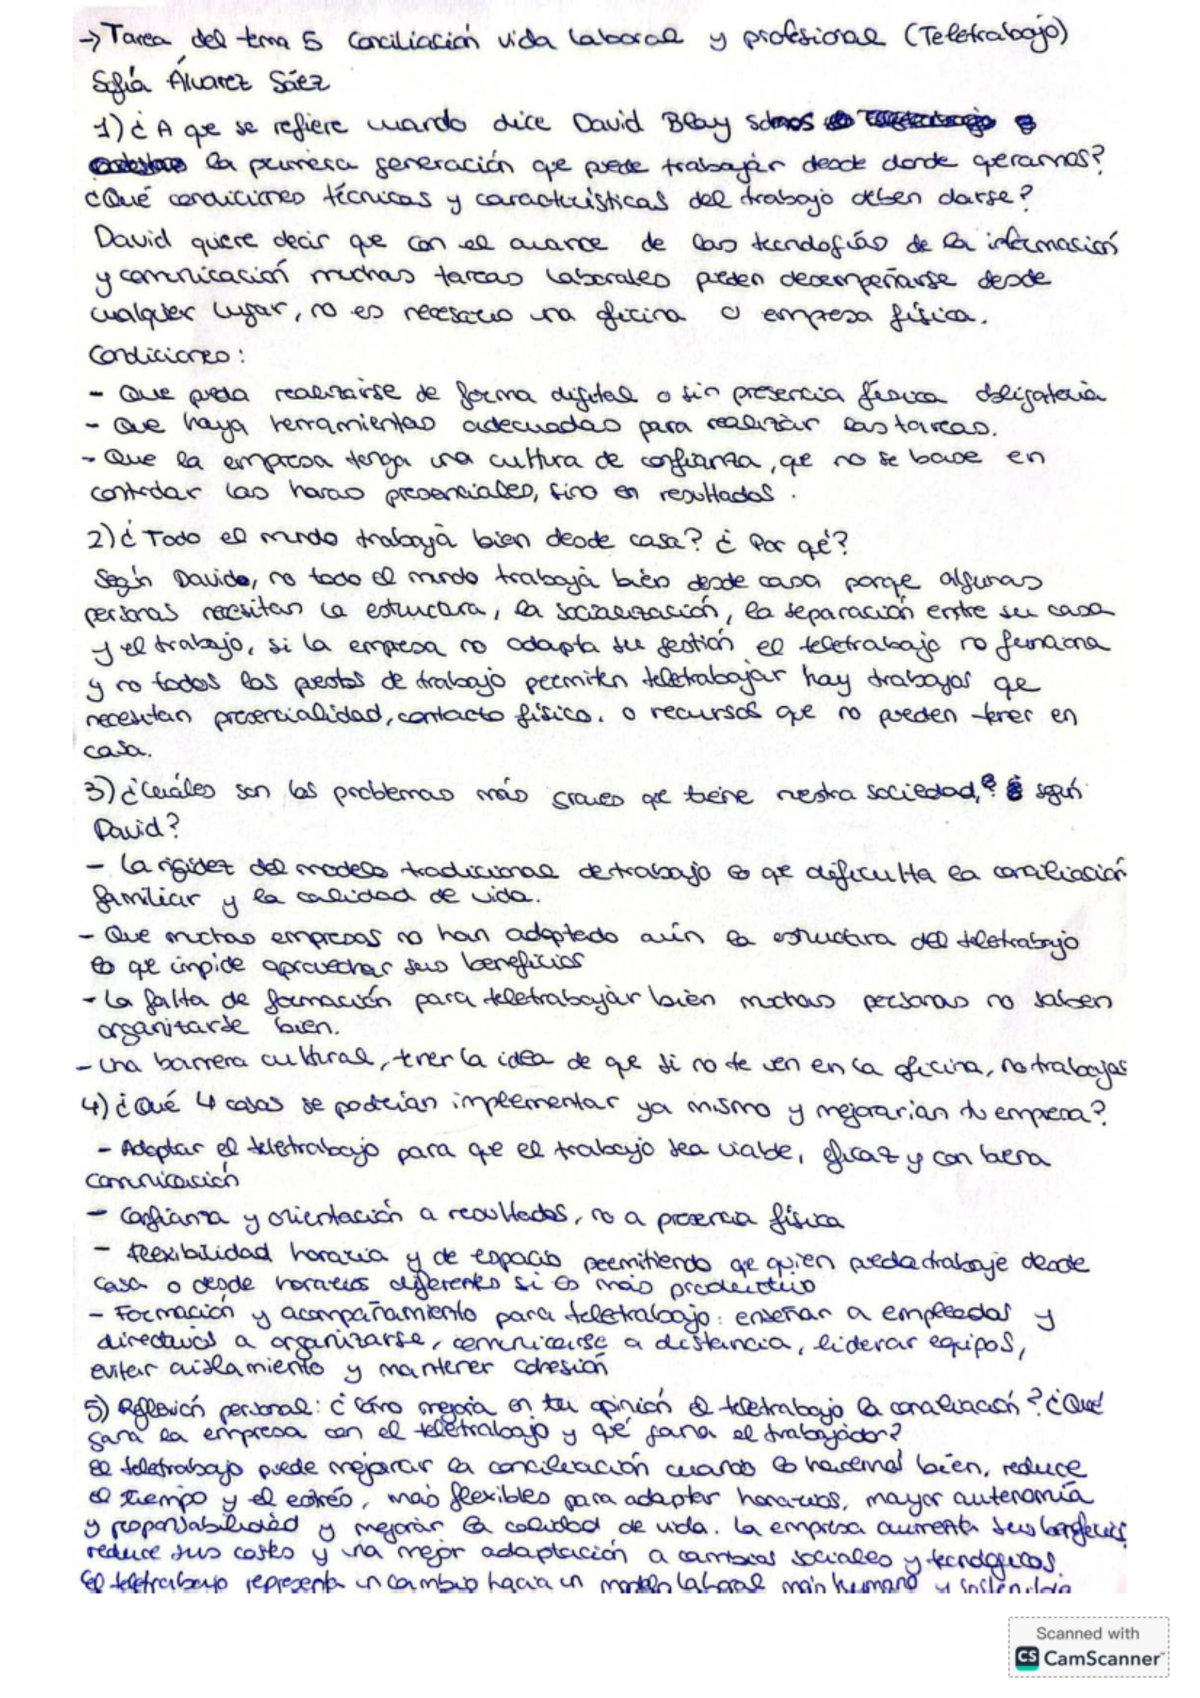 → Tarea del tema 5 Conciliación vida laboral y profesional (Teletrabajo)
Sofía Álvarez Sáez
1) ¿A que se refiere cuando dice David Blay somos
la primera generación que puede trabajar desde donde queramos?
¿Qué condiciones técnicas y características del trabajo deben darse?
David quiere decir que con el avance de las tecnologías de la información
y comunicación muchas tareas laborales pueden desempeñarse desde
cualquier lugar, no es necesario una oficina o empresa física.
Condiciones:
- Que pueda realizarse de forma digital o sin presencia física obligatoria
- Que haya herramientas adecuadas para realizar las tareas.
- Que la empresa tenga una cultura de confianza, que no se base en
controlar las horas presenciales, sino en resultados.
2) ¿Todo el mundo trabaja bien desde casa? ¿Por qé?
Según David, no todo el mundo trabaja bien desde casa porqe algunas
personas necesitan la estructura, la socialización, la separación entre su casa
y el trabajo, si la empresa no adapta su gestión el teletrabajo no funciona
y no todos los puestos de trabajo permiten teletrabajar hay trabajos qe
necesitan presencialidad, contacto físico, o recursos que no pueden tener en
casa.
3) ¿Cuáles son los problemas más graves qe tiene nuestra sociedad, según
David?
- La rigidez del modelo tradicional de trabajo lo qe dificulta la conciliación
familiar y la calidad de vida.
- Que muchas empresas no han adoptado aún la estructura del teletrabajo
lo qe impide aprovechar sus beneficios
- La falta de formación para teletrabajar bien muchas personas no saben
organizarse bien.
- Una barrera cultural, tener la idea de que si no te ven en la oficina, no trabajas
4) ¿Qué 4 cosas se podrían implementar ya mismo y mejorarían tu empresa?
- Adaptar el teletrabajo para que el trabajo sea viable, eficaz y con buena
comunicación
- Confianza y orientación a resultados, no a presencia física
- Flexibilidad horaria y de espacio permitiendo qe quien pueda trabaje desde
casa o desde horarios diferentes si es más productivo
- Formación y acompañamiento para teletrabajo: enseñar a empleados y
directivos a organizarse, comunicarse a distancia, liderar equipos,
evitar aislamiento y mantener cohesión
5) Reflexión personal: ¿Cómo mejora en tu opinión el teletrabajo la conciliación? ¿Qué
gana la empresa con el teletrabajo y qé gana el trabajador?
El teletrabajo puede mejorar la conciliación cuando lo hacemos bien, reduce
el tiempo y el estrés, más flexibles para adaptar horarios, mayor autonomía
y responsabilidad y mejorar la calidad de vida. La empresa aumenta sus beneficios
reduce sus costes y una mejor adaptación a cambios sociales y tecnológicos.
El teletrabajo representa un cambio hacia un modelo laboral más humano y sostenible
Scanned with
CS CamScanner